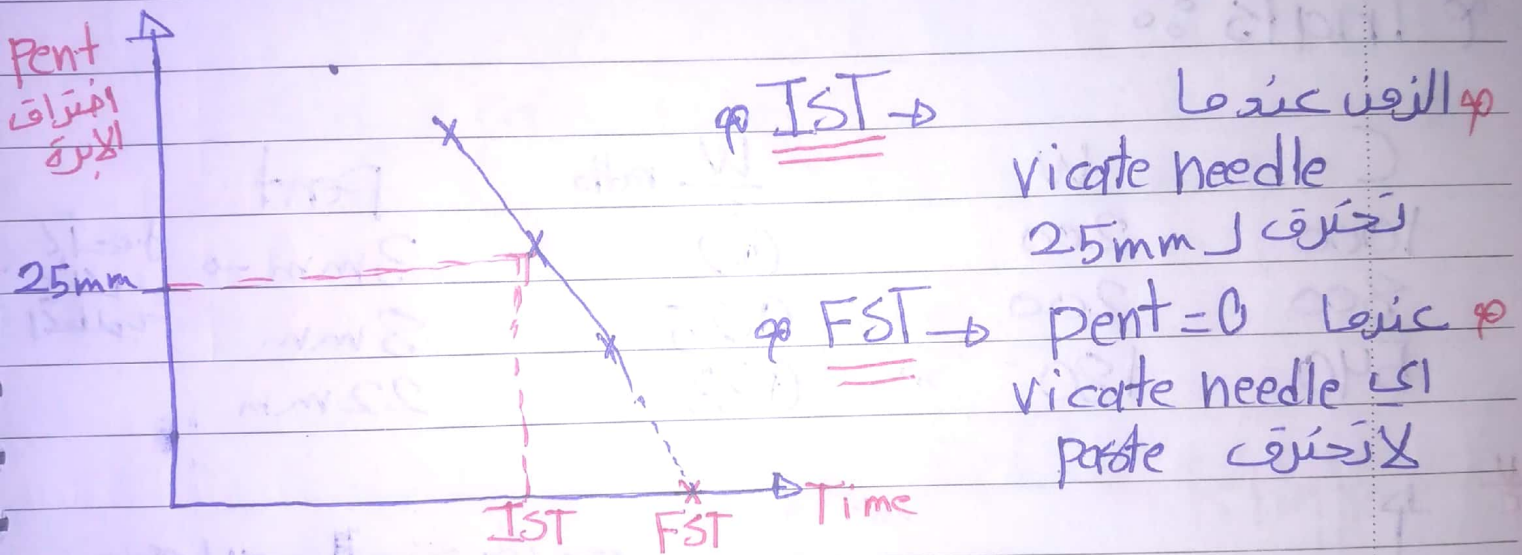 Pent
اختراق
الابرة
25mm
IST
FST
Time
IST →
الزمن عندما
vicate needle
تخترق لـ 25mm
FST →
عندما pent = 0
اي vicate needle
لا تخترق paste